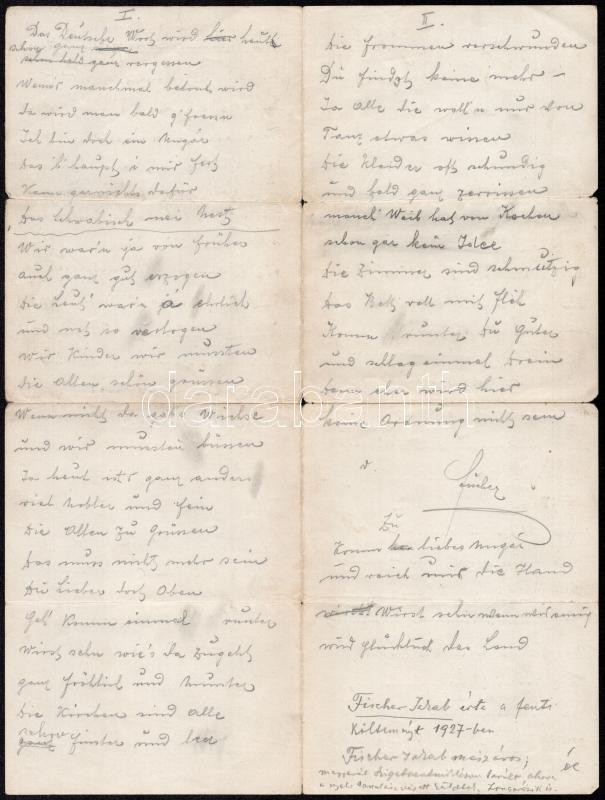 I.
Das Deutsche Wort wird hier heut
schon ganz
schon bald ganz vergessen
Wenn's manchmal betont wird
da wird man bald g'fressn
Ich bin doch ein Ungár
Das b'haupt i mir fest
Kann garnichts dafür
Das Schwabisch mei Nest
Wir war'n ja von früher
auch ganz gut erzogen
Die Leut' war'n já ehrlich
und net so verlogen
Wir Kinder wir mussten
die Alten schön grüssen
Wenn nicht da gabs Wichse
und wir mussten büssen
Ja heut ist's ganz anders
viel nobler und fein
Die Alten zu Grüssen
Das muss nicht mehr sein
Du Lieber dort Oben
Geh' Komm einmal runter
Wirst sehn wie's da zugeht
ganz fröhlich und munter
Die Kirchen sind alle
schon
ganz finster und leer
II.
Die frommen verschwunden
Du findest keine mehr –
Ja Alle die woll'n nur von
Tanz etwas wissen
Die Kleider oft schundig
und bald ganz zerrissen
manch' Weib hat von Kochen
schon gar kein Idee
Die Zimmer sind schmutzig
Das Bett voll mit Flöh
Komm runter Du Guter
und schlag einmal Drein
Denn eher wird hier
keine Ordnung nicht sein
Du
Komm liebes Ungár
und reich mir die Hand
Wirst sehn wenn wir einig
wird Glücklich das Land
Fischer Jakab érta a fenti
Költeményt 1927-ben
Fischer Jakab mészáros;